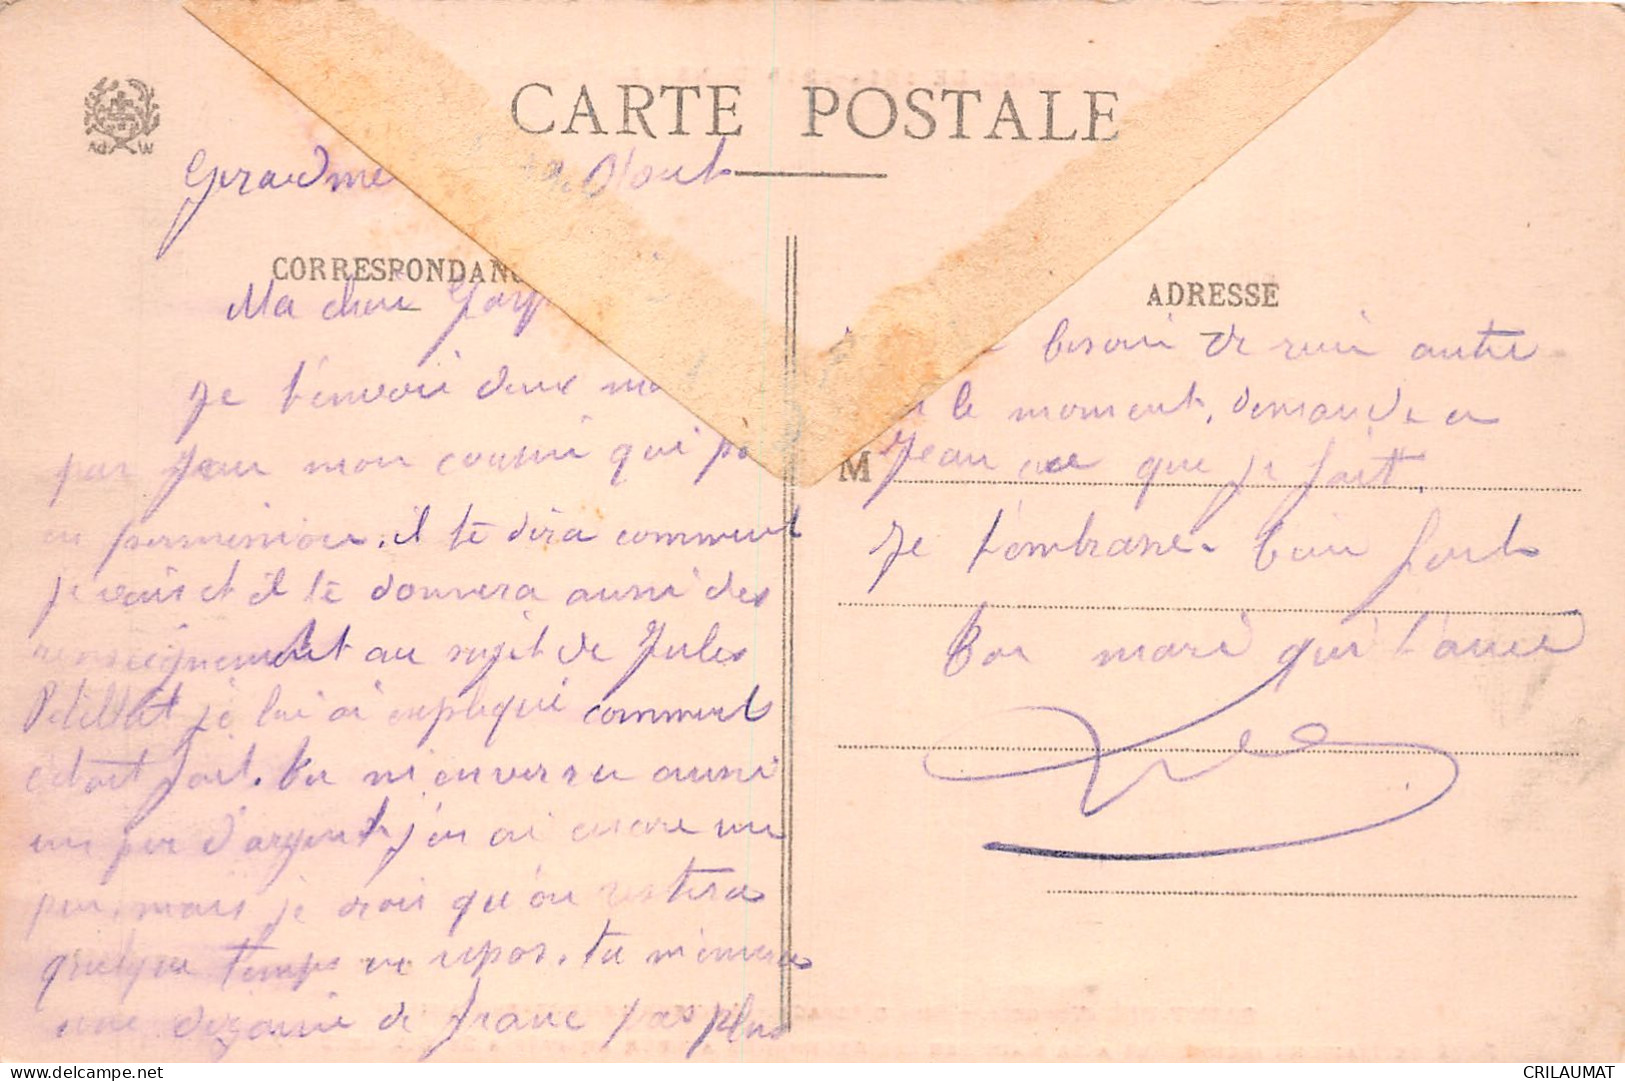 CARTE POSTALE
Ad W
Gerardme Aout
CORRESPONDAN
Ma chere
Je t'envoi deux mo
par Jean mon cousin qui pa
en permission. il te dira comment
je vais et il te donnera aussi des
renseignement au sujet de Jules
je lui ai expliqué comment
cetait fait. tu m'enverra aussi
un peu d'argent j'en ai encore un
peu, mais je crois qu'on restera
quelque temps au repos. tu m'enverras
une dizaine de franc pas plus
ADRESSE
besoin de rien autre
le moment, demande a
M
Jean ce que je fait.
Je t'embrasse bien fort
Ton mari qui t'aime
CRILAUMAT
delcampe.net